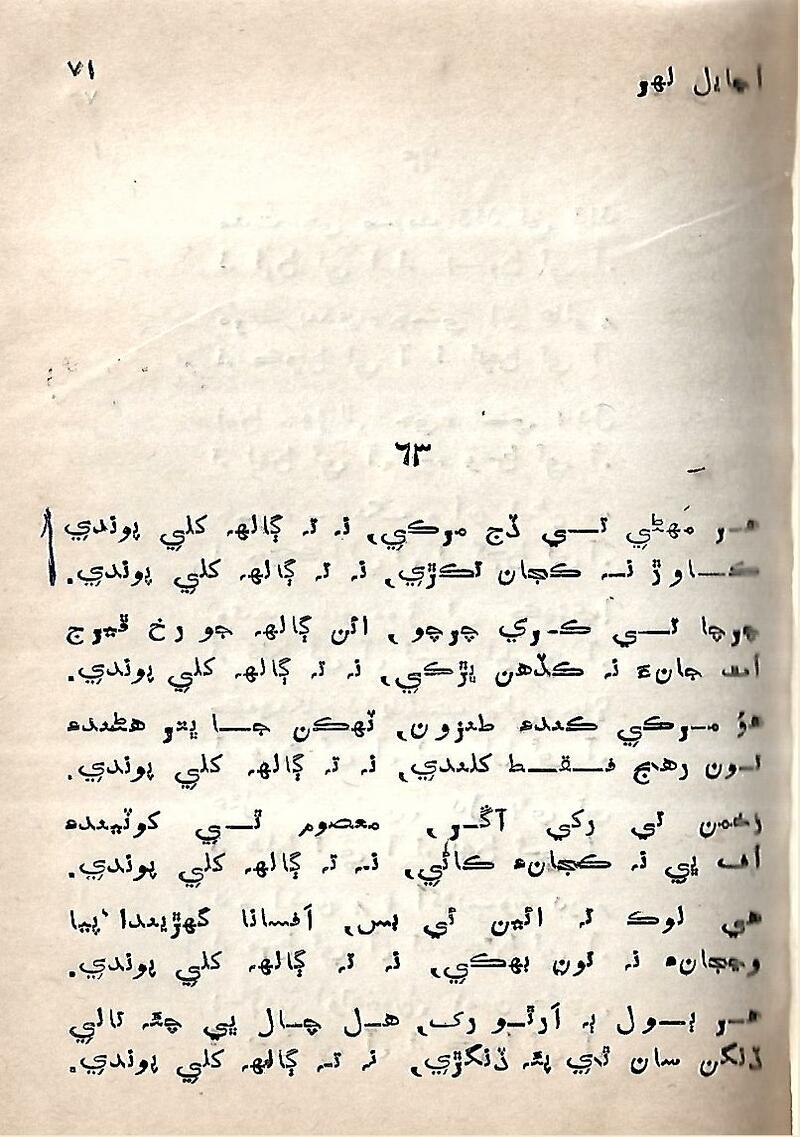 اڃايل لهر
٧١
٦٣
هـر مُهڻي تـي ڏج مرڪي، نہ تہ ڳالهہ کلي پوندي
ڪـاوڙ نہ ڪجان تڪڙي، نہ تہ ڳالهہ کلي پوندي.
چرچا تـي ڪـري چرچو، ائن ڳالهہ جو رخ ڦيرج
اُف جانءِ نہ ڪڏهن ڀڙڪي، نہ تہ ڳالهہ کلي پوندي.
هوُ مـرڪي ڪندءِ طنزون، ٽهڪن جـا پٿر هڻندءِ
تـون رهج فـقـط کلندي، نہ تہ ڳالهہ کلي پوندي.
زخمن تي رکي آڱـر، معصوم ٿـي کوٽيندءِ
اُف ڀي نہ ڪجانءِ ڪائي، نہ تہ ڳالهہ کلي پوندي.
هي لوڪ تہ ائين ئي بس، اَفسانا گهڙيندا پيا
وڃجانءِ نہ تون ٻهڪي، نہ تہ ڳالهہ کلي پوندي.
هـر ٻـول ٻہ اَرٿـو رک، هـل چـال ڀي چٿہ تالي
ڏنگن سان ٿي پئہ ڏنگڙي، نہ تہ ڳالهہ کلي پوندي.